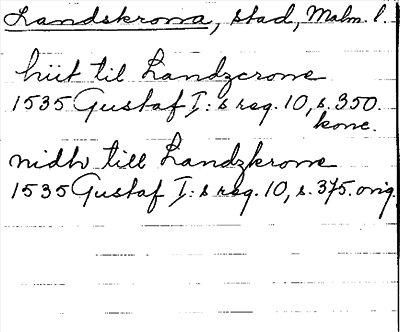 Landskrona, stad, Malm. l.
hiit til Landzcrone
1535 Gustaf I:s reg. 10, s. 350.
konc.
nidh till Landzkrone
1535 Gustaf I:s reg. 10, s. 375. orig.